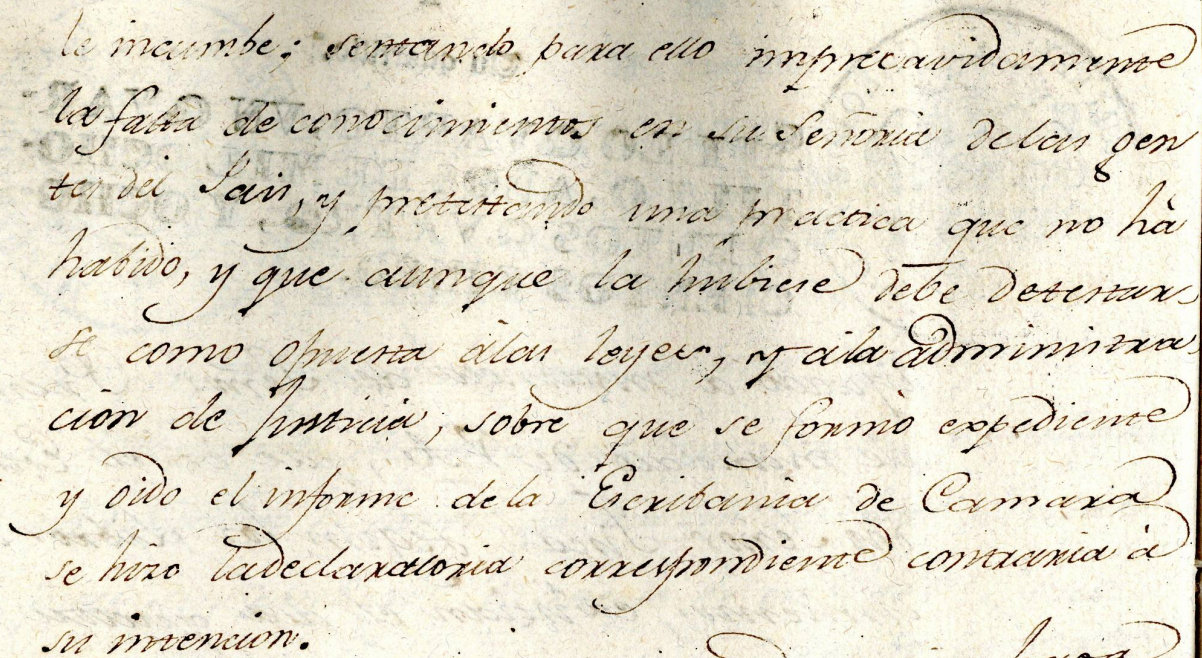 le incumbe; sentando para ello imprecavidamente
la falta de conocimientos en su Señoria delas gen
tes del Pais, y pretestando una practica que no hà
habido, y que aunque la hubiese debe detestar
se como opuesta álas leyes, y ála administra
cion de Justicia, sobre que se formó expediente
y oido el informe dela Escribania de Camara
se hizo ladeclaratoria correspondiente contraria à
su intencion.